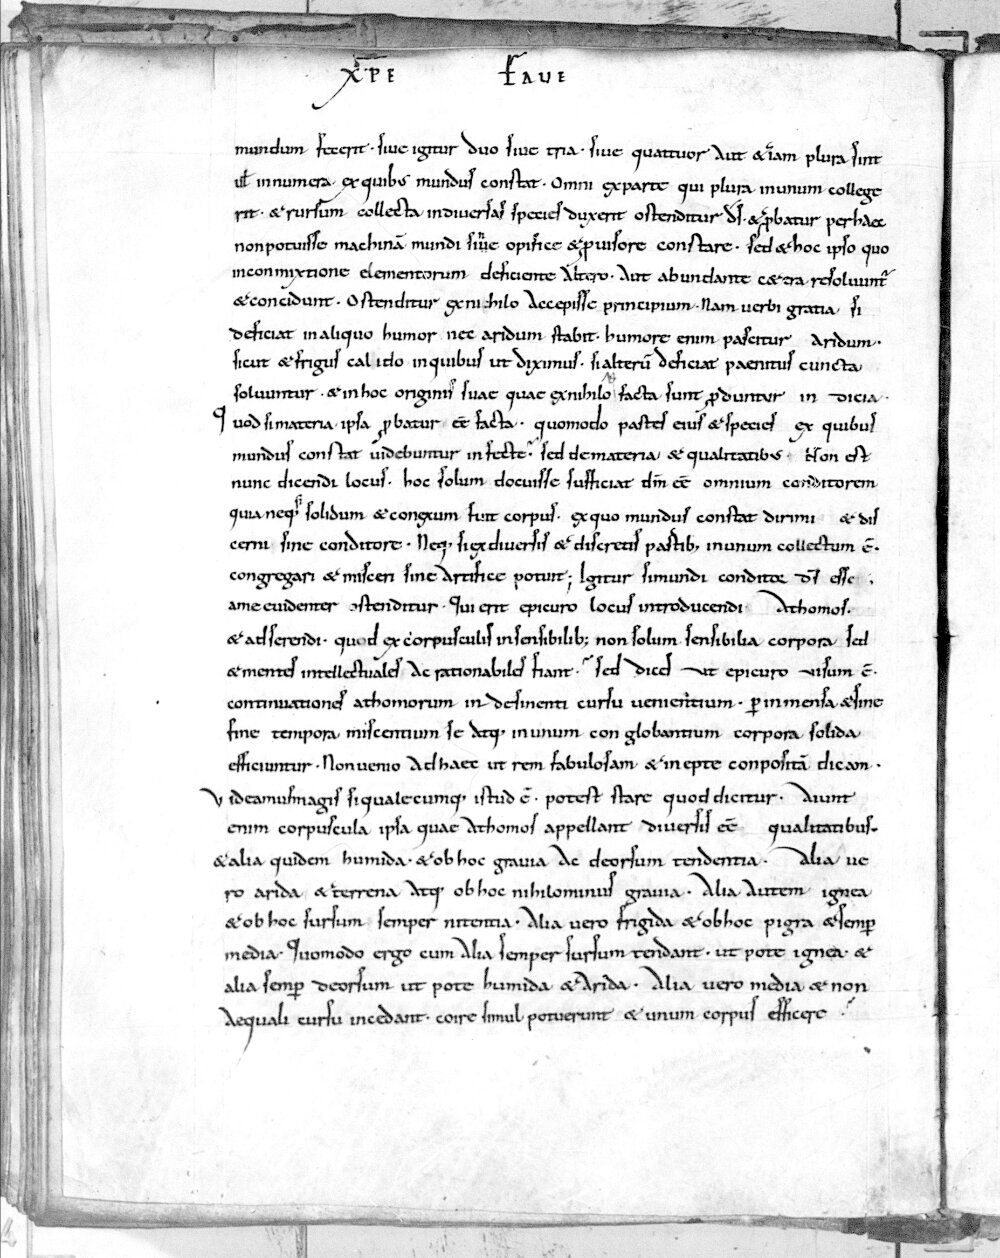 XPE FAUE
mundum fecerit · siue igitur duo siue tria · siue quattuor aut &iam plura sint
uł innumera · ex quibus mundus constat · Omni ex parte qui plura in unum college
rit · & rursum collecta in diuersas species duxerit ostenditur d̄s · & ꝓbatur per haec
non potuisse machinā mundi sine opifice & ꝓuisore constare · sed & hoc ipso quo
in conmixtione elementorum deficiente altero · aut abundante cetera resoluunt̃
& concidunt · Ostenditur ex nichilo accepisse principium · Nam uerbi gratia si
deficiat in aliquo humor nec aridum stabit · humore enim pascitur aridum ·
sicut & frigus calido in quibus ut diximus · si alterū deficiat paenitus cuncta
soluuntur · & in hoc originis suae quae ex nihilo facta sunt ꝓduntur indicia ·
Quod si materia ipsa ꝓbatur eē facta · quomodo partes eius & species ex quibus
mundus constat uidebuntur infectę · sed de materia & qualitatibus · Non est
nunc dicendi locus · hoc solum docuisse sufficiat dm̄ eē omnium conditorem
quia neq; si solidum & conexum fuit corpus · ex quo mundus constat dirimi & dis
cerni sine conditore · Neq; si ex diuersis & discretis partib; in unum collectum ē ·
congregari & misceri sine artifice potuit; Igitur si mundi conditor d̄s esse
a me euidenter ostenditur · Qui erit epicuro locus introducendi athomos ·
& adserendi · quod ex corpusculis insensibilib; non solum sensibilia corpora sed
& mentes intellectuales ac rationabiles fiant · sed dices ut epicuro uisum ē ·
continuationes athomorum indesinenti cursu uenientium · p̱ inmensa & sine
fine tempora miscentium se atq; in unum conglobantium corpora solida
efficiuntur · Non uenio ad haec ut rem fabulosam & inepte conpositā dicam ·
Videamus magis si qualecumq; istud ē · potest stare quod dicitur · Aiunt
enim corpuscula ipsa quae athomos appellant diuersis eē qualitatibus ·
& alia quidem humida · & ob hoc grauia ac deorsum tendentia · Alia ue
ro arida & terrena atq; ob hoc nihilominus grauia · Alia autem ignea
& ob hoc sursum semper nitentia · Alia uero frigida & ob hoc pigra & semp̱
media · Quomodo ergo cum alia semper sursum tendant · ut pote ignea · &
alia semp̱ deorsum ut pote humida & arida · Alia uero media & non
aequali cursu incedant · coire simul potuerunt & unum corpus efficere